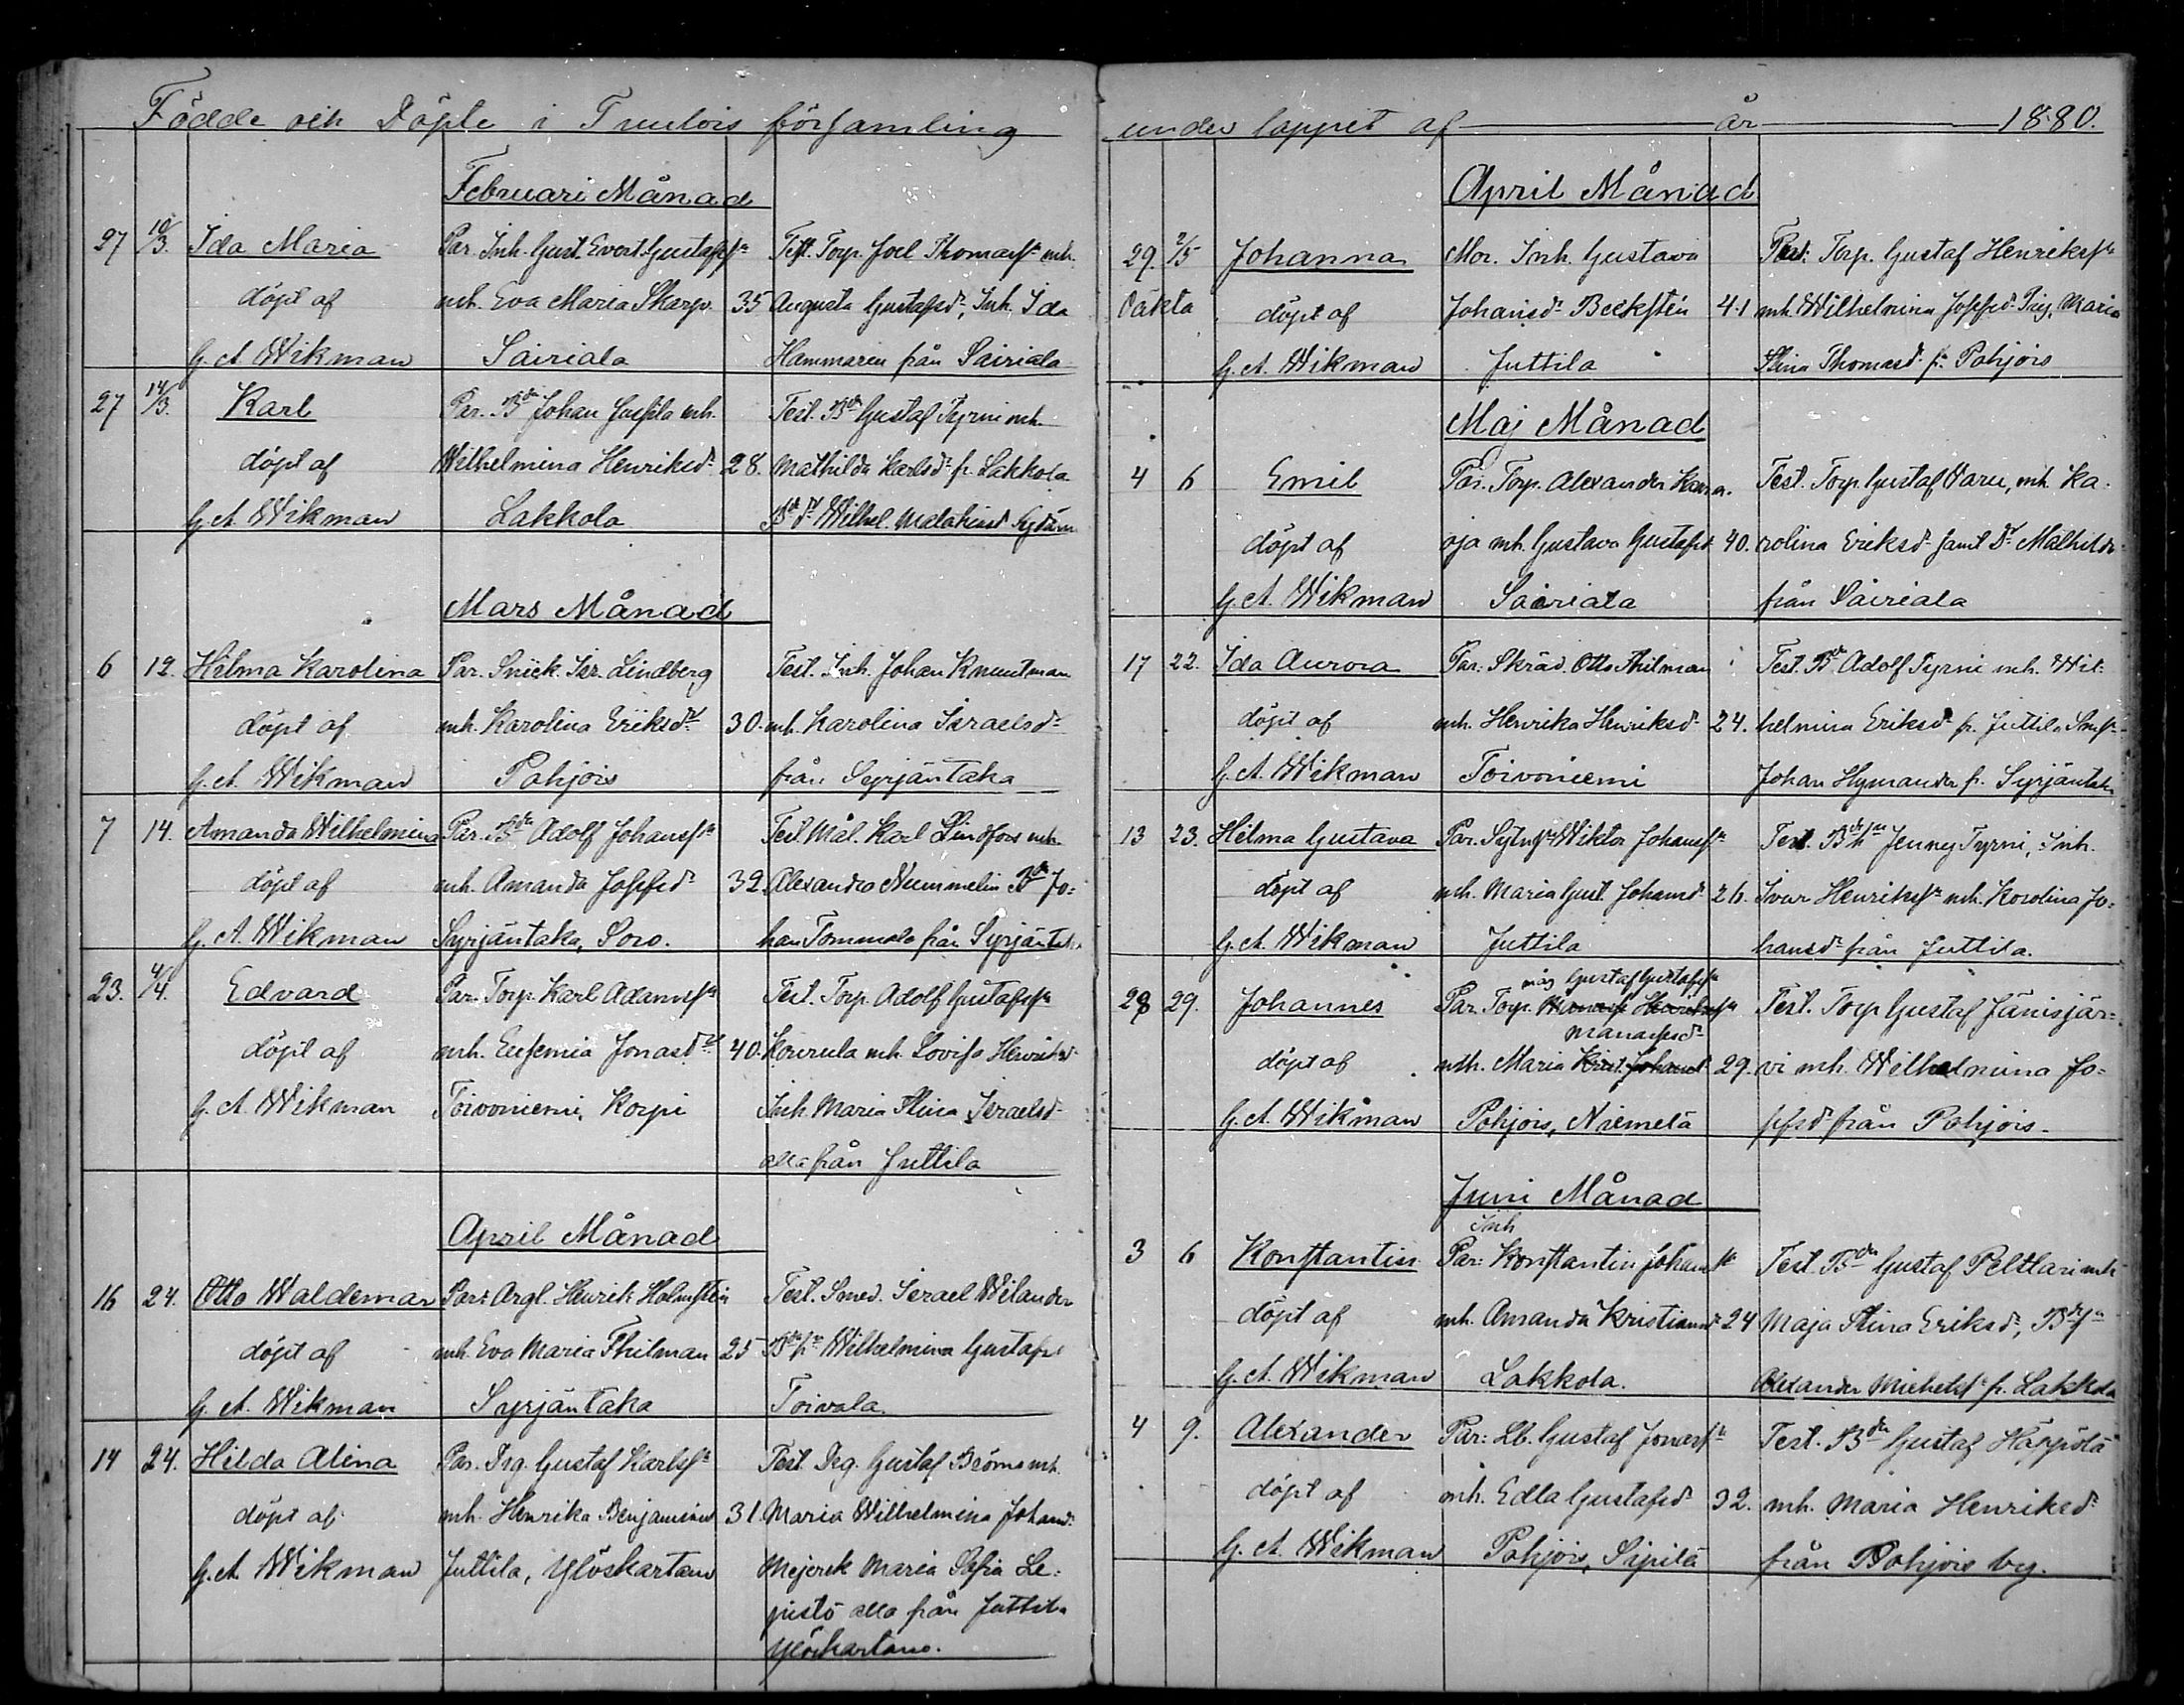 Födde och Döpte i Tuulois församling
Februari Månad
27 10/3. Ida Maria Par. Inh. Gust. Evert Gustafss:n Test. Torp. Joel Thomass:n mh.
döpt af mh. Eva Maria Skarp. 35 Augusta Gustafsd:r, Inh. Ida
G. A. Wikman Sairiala Hammaren från Sairiala
27 14/3. Karl Par. Bd:n Johan Jussila mh. Test. Bd:n Gustaf Tyrni mh.
döpt af Wilhelmina Henriksd:r 28. Mathilda Karlsd:r fr. Lakkola
G. A. Wikman Lakkola Wilhel.
Mars Månad
6 12. Hilma Karolina Par. Snick. Isr. Lindberg Test. Inh. Johan Knuutman
döpt af mh. Karolina Eriksd:r 30. mh. Karolina Israelsd:r
G. A. Wikman Pohjois från Syrjäntaka
7 14. Amanda Wilhelmina Par. Bd:n Adolf Johanss:n Test. Mål. Karl Lindfors mh.
döpt af mh. Amanda Josefsd:r 32. Alexandra Nummelin Bd:n Jo=
G. A. Wikman Syrjäntaka, Soro. han Tommola från Syrjäntaka
23. 4/4. Edvard Par. Torp. Karl Adamss:n Test. Torp. Adolf Gustafss:n
döpt af mh. Eufemia Jonasd:r 40. Kourula mh. Lovisa Henriksd:r
G. A. Wikman Toivoniemi, Korpi Inh. Maria Stina Israelsd:r
alla från Juttila
April Månad
16 24. Otto Waldemar Par: Argl. Henrik Holmsten Test. Smed. Israel Wilander
döpt af mh. Eva Maria Thilman 25 Wilhelmina Gustafsd
G. A. Wikman Syrjäntaka Toivala.
14 24. Hilda Alina Par. Drg. Gustaf Karlss:n Test. Drg. Gustaf Bröms mh.
döpt af mh. Henrika Benjaminsd 31. Maria Wilhelmina Johansd:r
G. A. Wikman Juttila, Ylöskartano Mejersk Maria Sofia Le=
pistö alla från Juttila
Ylöskartano.
under loppet af år 1880.
April Månad
29. 2/5 Johanna Mor. Inh. Gustava Test: Torp. Gustaf Henrikss:n
Oäkta döpt af Johansd:r Beckstén 41 mh. Wilhelmina Josefsd:r Pig. Maria
G. A. Wikman Juttila Stina Thomasd:r fr. Pohjois
Maj Månad
4 6 Emil Par. Torp. Alexander Kans a. Test. Torp. Gustaf Varu, mh. Ka.
döpt af oja mh. Gustava Gustafsd 40. rolina Eriksd:r samt D:r Mathilda
G. A. Wikman Sairiala från Sairiala
17 22. Ida Aurora Par: Skräd. Otto Thilman Test. Bd:n Adolf Tyrni mh. Wil=
döpt af mh. Henrika Henriksd:r 24. helmina Eriksd:r fr. Juttila
G. A. Wikman Toivoniemi Johan Hymander fr. Syrjäntaka
13 23. Hilma Gustava Par. Wiktor Johanss:n Test. Jenny Tyrni, Inh.
döpt af mh. Maria Gust. Johansd:r 26. Ivar Henrikss:n mh. Karolina Jo=
G. A. Wikman Juttila hansd:r från Juttila.
måg Gustaf Gustafss:n
28 29. Johannes Par. Torp. Manass Henrikss:n Test. Torp Gustaf Jänisjär=
Manassesd:r
döpt af mh. Maria Krist. Johansd 29. vi mh. Wilhelmina Jo=
G. A. Wikman Pohjois, Niemelä sefsd:r från Pohjois.
Juni Månad
Inh
3 6 Konstantin Par: Konstantin Johanss:n Test. Bd:n Gustaf Peltari mh
döpt af mh. Amanda Kristiansd:r 24 Maja Stina Eriksd:r, Bds:n
G. A. Wikman Lakkola. Alexander Michelss:n fr. Lakkola
4 9. Alexander Par: Lb. Gustaf Jonass:n Test. Bd:n Gustaf Häppölä
döpt af mh. Edla Gustafsd:r 32. mh. Maria Henriksd:r
G. A. Wikman Pohjois, Sipilä från Pohjois by.